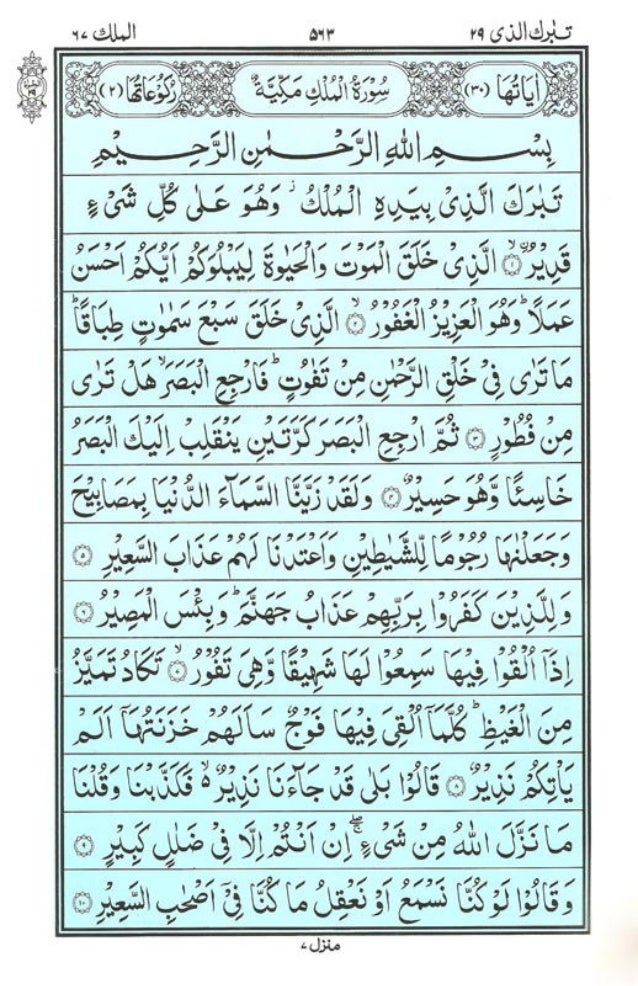 تبٰرك الذی ۲۹ ۵۶۳ الملك ۶۷
اٰیَاتُهَا (۳۰) سُوْرَةُ الْمُلْكِ مَكِّیَّةٌ رُكُوْعَاتُهَا (۲)
بِسْمِ اللّٰهِ الرَّحْمٰنِ الرَّحِیْمِ
تَبٰرَكَ الَّذِیْ بِیَدِهِ الْمُلْكُ ؗ وَهُوَ عَلٰی كُلِّ شَیْءٍ
قَدِیْرُ ۙ﴿۱﴾ الَّذِیْ خَلَقَ الْمَوْتَ وَالْحَیٰوةَ لِیَبْلُوَكُمْ اَیُّكُمْ اَحْسَنُ
عَمَلًا ؕ وَهُوَ الْعَزِیْزُ الْغَفُوْرُ ۙ﴿۲﴾ الَّذِیْ خَلَقَ سَبْعَ سَمٰوٰتٍ طِبَاقًا ؕ
مَا تَرٰی فِیْ خَلْقِ الرَّحْمٰنِ مِنْ تَفٰوُتٍ ؕ فَارْجِعِ الْبَصَرَ ۙ هَلْ تَرٰی
مِنْ فُطُوْرٍ ﴿۳﴾ ثُمَّ ارْجِعِ الْبَصَرَ كَرَّتَیْنِ یَنْقَلِبْ اِلَیْكَ الْبَصَرُ
خَاسِئًا وَّهُوَ حَسِیْرٌ ﴿۴﴾ وَلَقَدْ زَیَّنَّا السَّمَآءَ الدُّنْیَا بِمَصَابِیْحَ
وَجَعَلْنٰهَا رُجُوْمًا لِّلشَّیٰطِیْنِ وَاَعْتَدْنَا لَهُمْ عَذَابَ السَّعِیْرِ ﴿۵﴾
وَلِلَّذِیْنَ كَفَرُوْا بِرَبِّهِمْ عَذَابُ جَهَنَّمَ ؕ وَبِئْسَ الْمَصِیْرُ ﴿۶﴾
اِذَاۤ اُلْقُوْا فِیْهَا سَمِعُوْا لَهَا شَهِیْقًا وَّهِیَ تَفُوْرُ ۙ﴿۷﴾ تَكَادُ تَمَیَّزُ
مِنَ الْغَیْظِ ؕ كُلَّمَاۤ اُلْقِیَ فِیْهَا فَوْجٌ سَاَلَهُمْ خَزَنَتُهَاۤ اَلَمْ
یَاْتِكُمْ نَذِیْرٌ ﴿۸﴾ قَالُوْا بَلٰی قَدْ جَآءَنَا نَذِیْرٌ ۙ۬ فَكَذَّبْنَا وَقُلْنَا
مَا نَزَّلَ اللّٰهُ مِنْ شَیْءٍ ۖۚ اِنْ اَنْتُمْ اِلَّا فِیْ ضَلٰلٍ كَبِیْرٍ ﴿۹﴾
وَقَالُوْا لَوْ كُنَّا نَسْمَعُ اَوْ نَعْقِلُ مَا كُنَّا فِیْۤ اَصْحٰبِ السَّعِیْرِ ﴿۱۰﴾
منزل ۷